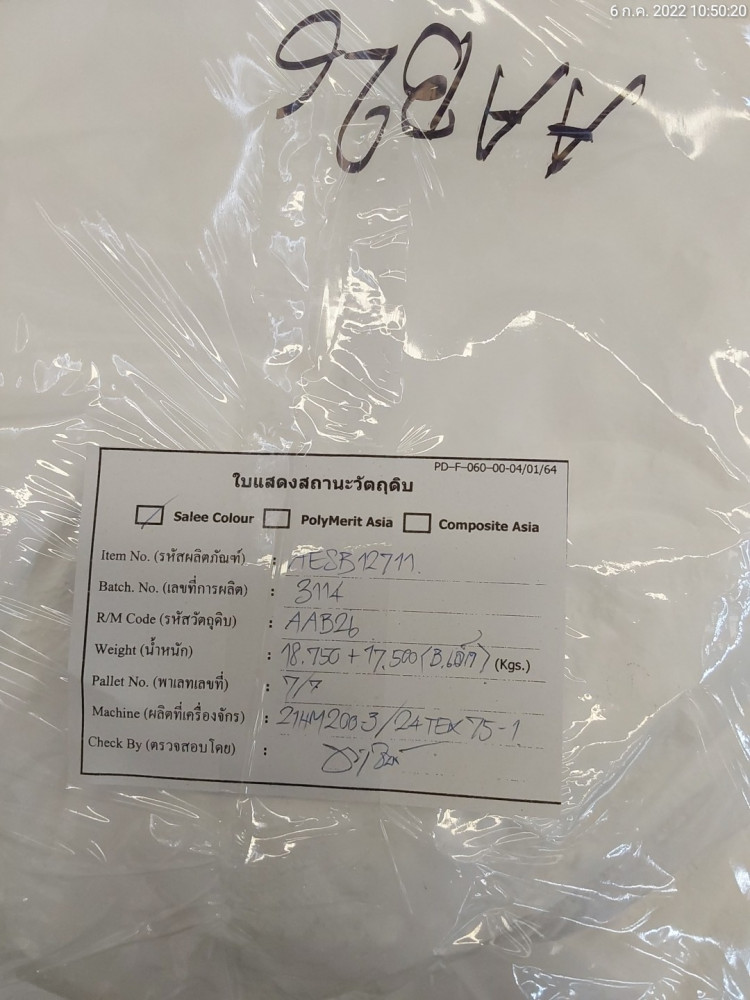 6 ก.ค. 2022 10:50:20
AAB26
PD-F-060-00-04/01/64
ใบแสดงสถานะวัตถุดิบ
Salee Colour PolyMerit Asia Composite Asia
Item No. (รหัสผลิตภัณฑ์) : AESB12711
Batch. No. (เลขที่การผลิต) : 3114
R/M Code (รหัสวัตถุดิบ) : AAB26
Weight (น้ำหนัก) : 18.750 + 17.500 (Kgs.)
Pallet No. (พาเลทเลขที่) : 7/7
Machine (ผลิตที่เครื่องจักร) : 21HM200-3/24TEX75-1
Check By (ตรวจสอบโดย) :